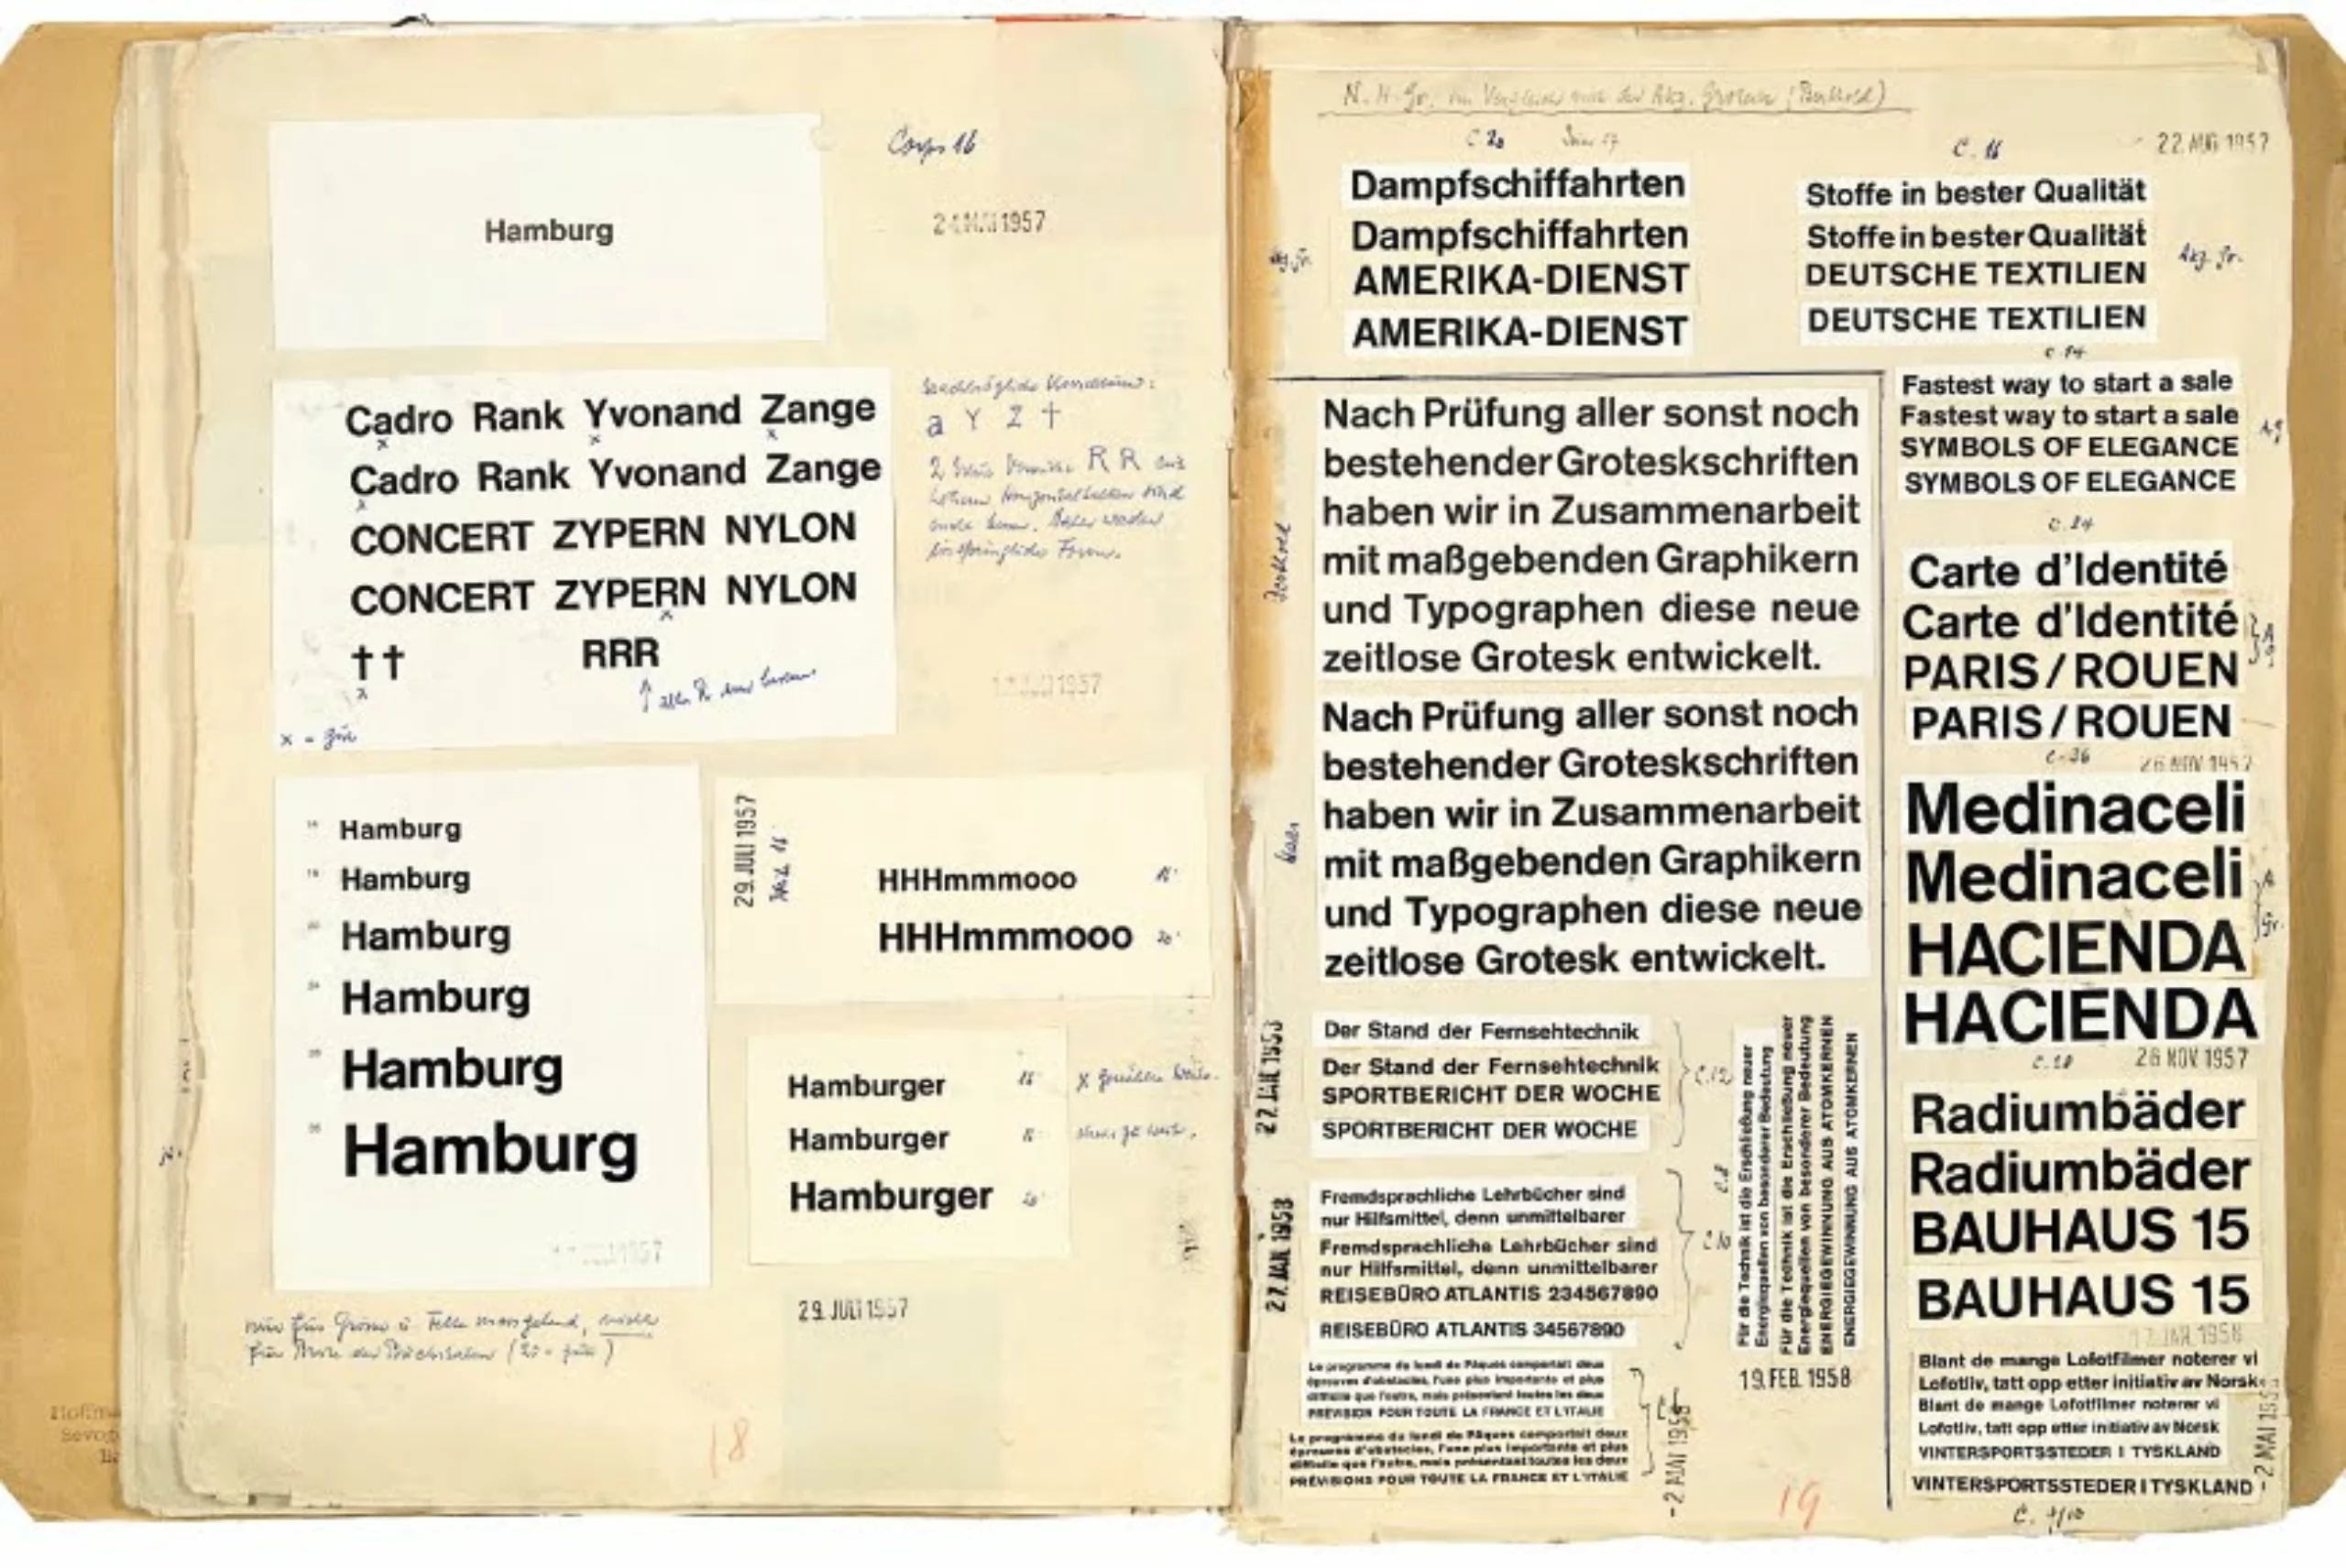 Corps 16
Hamburg
Cadro Rank Yvonand Zange
Cadro Rank Yvonand Zange
CONCERT ZYPERN NYLON
CONCERT ZYPERN NYLON
†† RRR
a Y Z †
R R
x = gut
Hamburg
Hamburg
Hamburg
Hamburg
Hamburg
Hamburg
29. JULI 1957
HHHmmmooo
HHHmmmooo
Hamburger
Hamburger
Hamburger
29. JULI 1957
18
N. H. Gr. im Vergleich mit der Akz. Grotesk (Berthold)
C. 20
C. 16
22. AUG 1957
Dampfschiffahrten
Dampfschiffahrten
AMERIKA-DIENST
AMERIKA-DIENST
Akz. Gr.
Stoffe in bester Qualität
Stoffe in bester Qualität
DEUTSCHE TEXTILIEN
DEUTSCHE TEXTILIEN
Akz. Gr.
Nach Prüfung aller sonst noch
bestehender Groteskschriften
haben wir in Zusammenarbeit
mit maßgebenden Graphikern
und Typographen diese neue
zeitlose Grotesk entwickelt.
Nach Prüfung aller sonst noch
bestehender Groteskschriften
haben wir in Zusammenarbeit
mit maßgebenden Graphikern
und Typographen diese neue
zeitlose Grotesk entwickelt.
27. JAN. 1958
Der Stand der Fernsehtechnik
Der Stand der Fernsehtechnik
SPORTBERICHT DER WOCHE
SPORTBERICHT DER WOCHE
C. 12
27. JAN. 1958
Fremdsprachliche Lehrbücher sind
nur Hilfsmittel, denn unmittelbarer
Fremdsprachliche Lehrbücher sind
nur Hilfsmittel, denn unmittelbarer
REISEBÜRO ATLANTIS 234567890
REISEBÜRO ATLANTIS 34567890
C. 10
Le programme du lundi de Pâques comportait deux
épreuves d'obstacles, l'une plus importante et plus
difficile que l'autre, mais présentant toutes les deux
PREVISION POUR TOUTE LA FRANCE ET L'ITALIE
Le programme du lundi de Pâques comportait deux
épreuves d'obstacles, l'une plus importante et plus
difficile que l'autre, mais présentant toutes les deux
PRÉVISIONS POUR TOUTE LA FRANCE ET L'ITALIE
-2 MAI 1958
C. 8
Für die Technik ist die Erschließung neuer
Energiequellen von besonderer Bedeutung
Für die Technik ist die Erschließung neuer
Energiequellen von besonderer Bedeutung
ENERGIEGEWINNUNG AUS ATOMKERNEN
ENERGIEGEWINNUNG AUS ATOMKERNEN
19. FEB. 1958
Fastest way to start a sale
Fastest way to start a sale
SYMBOLS OF ELEGANCE
SYMBOLS OF ELEGANCE
C. 24
Carte d'Identité
Carte d'Identité
PARIS / ROUEN
PARIS / ROUEN
C. 36
26 NOV 1957
Medinaceli
Medinaceli
HACIENDA
HACIENDA
26 NOV 1957
Radiumbäder
Radiumbäder
BAUHAUS 15
BAUHAUS 15
17 JAN. 1958
Blant de mange Lofotfilmer noterer vi
Lofotliv, tatt opp etter initiativ av Norsk
Blant de mange Lofotfilmer noterer vi
Lofotliv, tatt opp etter initiativ av Norsk
VINTERSPORTSSTEDER I TYSKLAND
VINTERSPORTSSTEDER I TYSKLAND
19